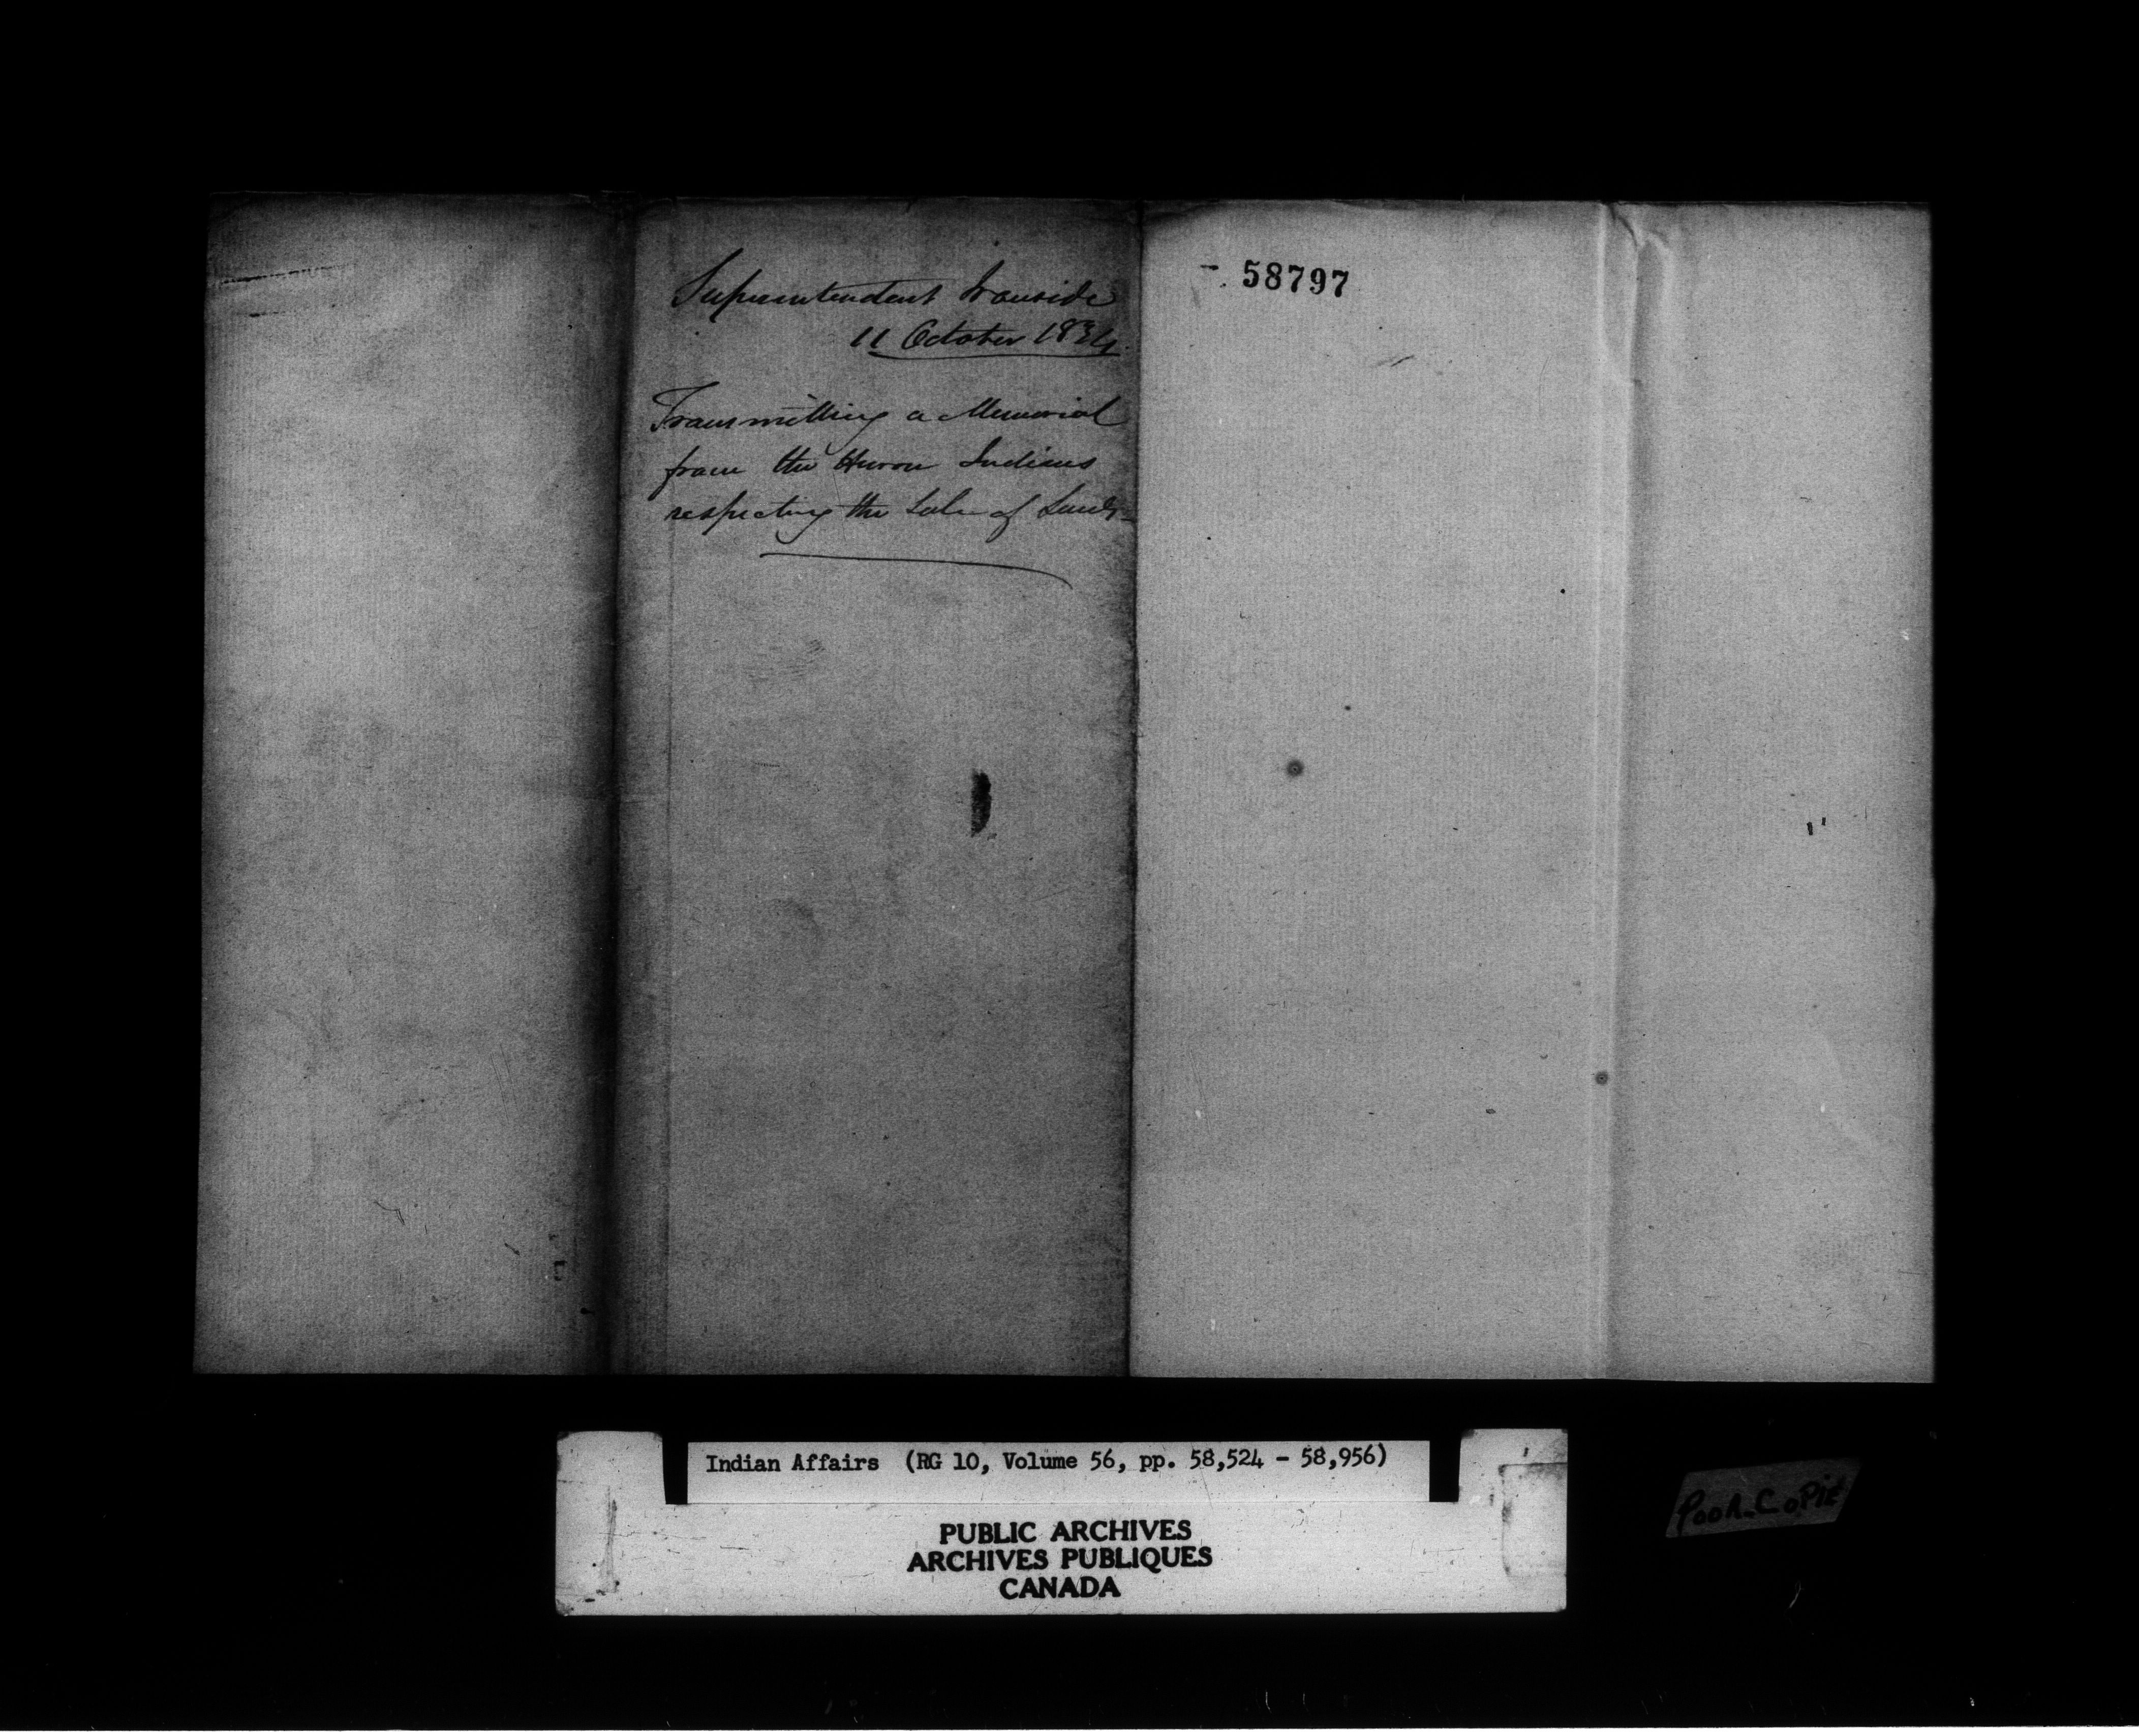 Superintendent Ironside
11 October 1834
Transmitting a Memorial
from the Huron Indians
respecting the Sale of Lands
58797
Indian Affairs (RG 10, Volume 56, pp. 58,524 - 58,956)
PUBLIC ARCHIVES
ARCHIVES PUBLIQUES
CANADA
POOR COPIE